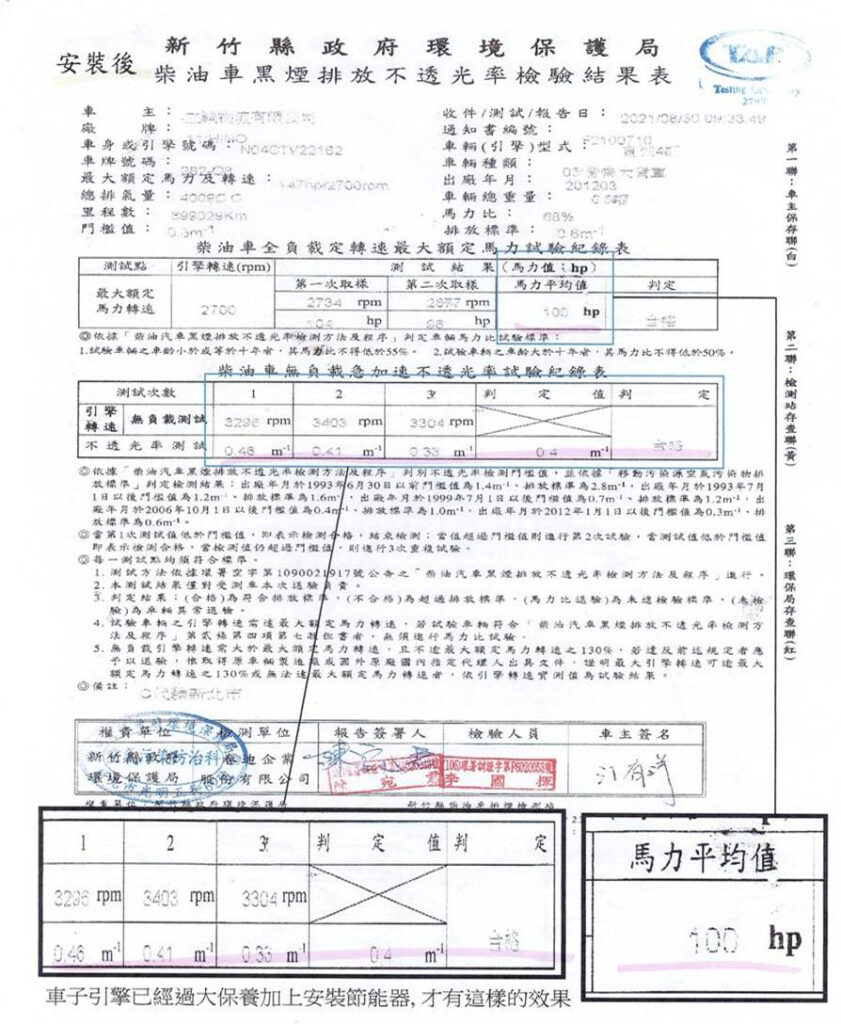 安裝後
新竹縣政府環境保護局
柴油車黑煙排放不透光率檢驗結果表
車主：
廠牌：HINO
車身或引擎號碼：N04CTV22162
車牌號碼：
最大額定馬力及轉速：147hp/2700rpm
總排氣量：4009C C
里程數：899029Km
門檻值：0.3m⁻¹
收件/測試/報告日：2021/08/30 09:33:49
通知書編號：
車輛(引擎)型式：
車輛種類：
出廠年月：201203
車輛總重量：
馬力比：68%
排放標準：0.6m⁻¹
第一聯：車主保存聯(白)
第二聯：檢測站存查聯(黃)
第三聯：環保局存查聯(紅)
柴油車全負載定轉速最大額定馬力試驗紀錄表
測試點 引擎轉速(rpm) 測試結果(馬力值：hp)
第一次取樣 第二次取樣 馬力平均值 判定
最大額定馬力轉速 2700 2734 rpm rpm 100 hp 合格
hp hp
◎依據「柴油汽車黑煙排放不透光率檢測方法及程序」判定車輛馬力比試驗標準：
1.試驗車輛之車齡小於或等於十年者，其馬力比不得低於55%。 2.試驗車輛之車齡大於十年者，其馬力比不得低於50%。
柴油車無負載急加速不透光率試驗紀錄表
測試次數 1 2 3 判定值 判定
引擎轉速 無負載測試 3296 rpm 3403 rpm 3304 rpm
不透光率測試 0.46 m⁻¹ 0.41 m⁻¹ 0.33 m⁻¹ 0.4 m⁻¹ 合格
◎依據「柴油汽車黑煙排放不透光率檢測方法及程序」判別不透光率檢測門檻值，並依據「移動污染源空氣污染物排
放標準」判定檢測結果：出廠年月於1993年6月30日以前門檻值為1.4m⁻¹、排放標準為2.8m⁻¹，出廠年月於1993年7月
1日以後門檻值為1.2m⁻¹、排放標準為1.6m⁻¹，出廠年月於1999年7月1日以後門檻值為0.7m⁻¹、排放標準為1.2m⁻¹，出廠
年月於2006年10月1日以後門檻值為0.4m⁻¹、排放標準為1.0m⁻¹，出廠年月於2012年1月1日以後門檻值為0.3m⁻¹、排
放標準為0.6m⁻¹。
◎當第1次測試值低於門檻值，即表示檢測合格，結束檢測；當值超過門檻值則進行第2次試驗，當測試值低於門檻值
即表示檢測合格，當檢測值仍超過門檻值，則進行3次重複試驗。
◎每一測試點均須符合標準。
1. 測試方法依據環署空字第1090021917號公告之「柴油汽車黑煙排放不透光率檢測方法及程序」進行。
2. 本測試結果僅對受測車本次送驗負責。
3. 判定結果：(合格)為符合排放標準，(不合格)為超過排放標準，(馬力比退驗)為未達檢驗標準，(未檢
驗)為車輛異常退驗。
4. 試驗車輛之引擎轉速需達最大額定馬力轉速，若試驗車輛符合「柴油汽車黑煙排放不透光率檢測方
法及程序」第貳條第四項第七款但書者，無須進行馬力比試驗。
5. 無負載引擎轉速需大於最大額定馬力轉速，且不逾最大額定馬力轉速之130%，若違反前述規定者應
予以退驗，惟取得原車輛製造廠或國外原廠國內指定代理人出具文件，證明最大引擎轉速可逾最大
額定馬力轉速之130%或無法達最大額定馬力轉速者，依引擎轉速實測值為試驗結果。
◎備註：
權責單位 檢測單位 報告簽署人 檢驗人員 車主簽名
新竹縣政府
環境保護局 股份有限公司
1 2 3 判定值 判定
3296 rpm 3403 rpm 3304 rpm
0.46 m⁻¹ 0.41 m⁻¹ 0.33 m⁻¹ 0.4 m⁻¹ 合格
馬力平均值
100 hp
車子引擎已經過大保養加上安裝節能器, 才有這樣的效果